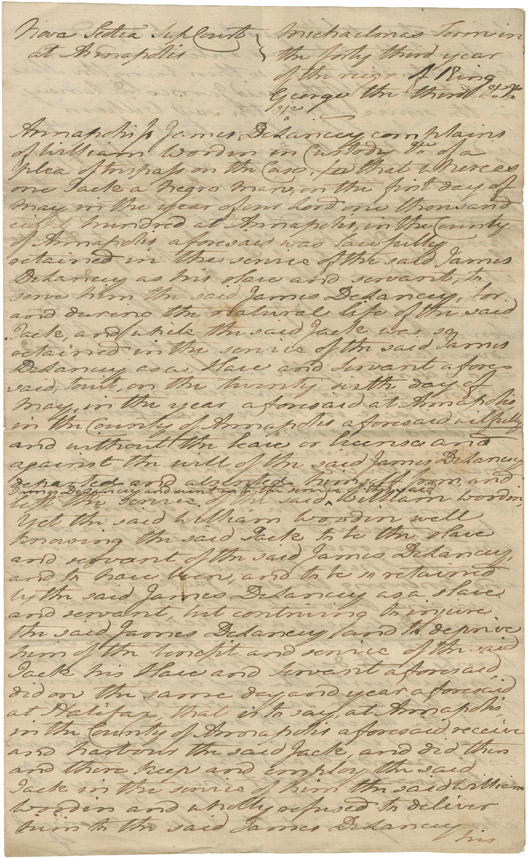 Nova Scotia Sup Court } Michaelmas Term in
at Annapolis the forty third year
of the reign of King
George the third &c.
Annapolis ss James DeLancey complains
of William Woodin in Custody &c of a
plea of trespass on the Case, for that whereas
one Jack a Negro man, on the first day of
May in the year of our Lord one thousand
eight hundred at Annapolis, in the County
of Annapolis aforesaid was lawfully
retained in the service of the said James
DeLancey as his slave and servant, to
serve him the said James DeLancey, for
and during the natural life of the said
Jack, and while the said Jack was so
retained in the service of the said James
DeLancey as a slave and servant afore
said, to wit, on the twenty sixth day of
May, in the year aforesaid at Annapolis
in the County of Annapolis aforesaid wilfully
and without the leave or licence and
against the will of the said James DeLancey
departed and absented himself from and
James DeLancey and went into the service of the said
left the service of the said ^ William Woodin
Yet the said William Woodin well
knowing the said Jack to be the slave
and servant of the said James DeLancey,
and to have been, and to be so retained
by the said James DeLancey as a slave
and servant, but contriving to injure
the said James DeLancey and to deprive
him of the benefit and service of the said
Jack his slave and servant aforesaid
did on the same day and year aforesaid
at Halifax, that is to say, at Annapolis
in the County of Annapolis aforesaid receive
and harbour the said Jack, and did then
and there keep and employ the said
Jack in the service of him the said William
Woodin and wholly refused to deliver
him to the said James DeLancey
his